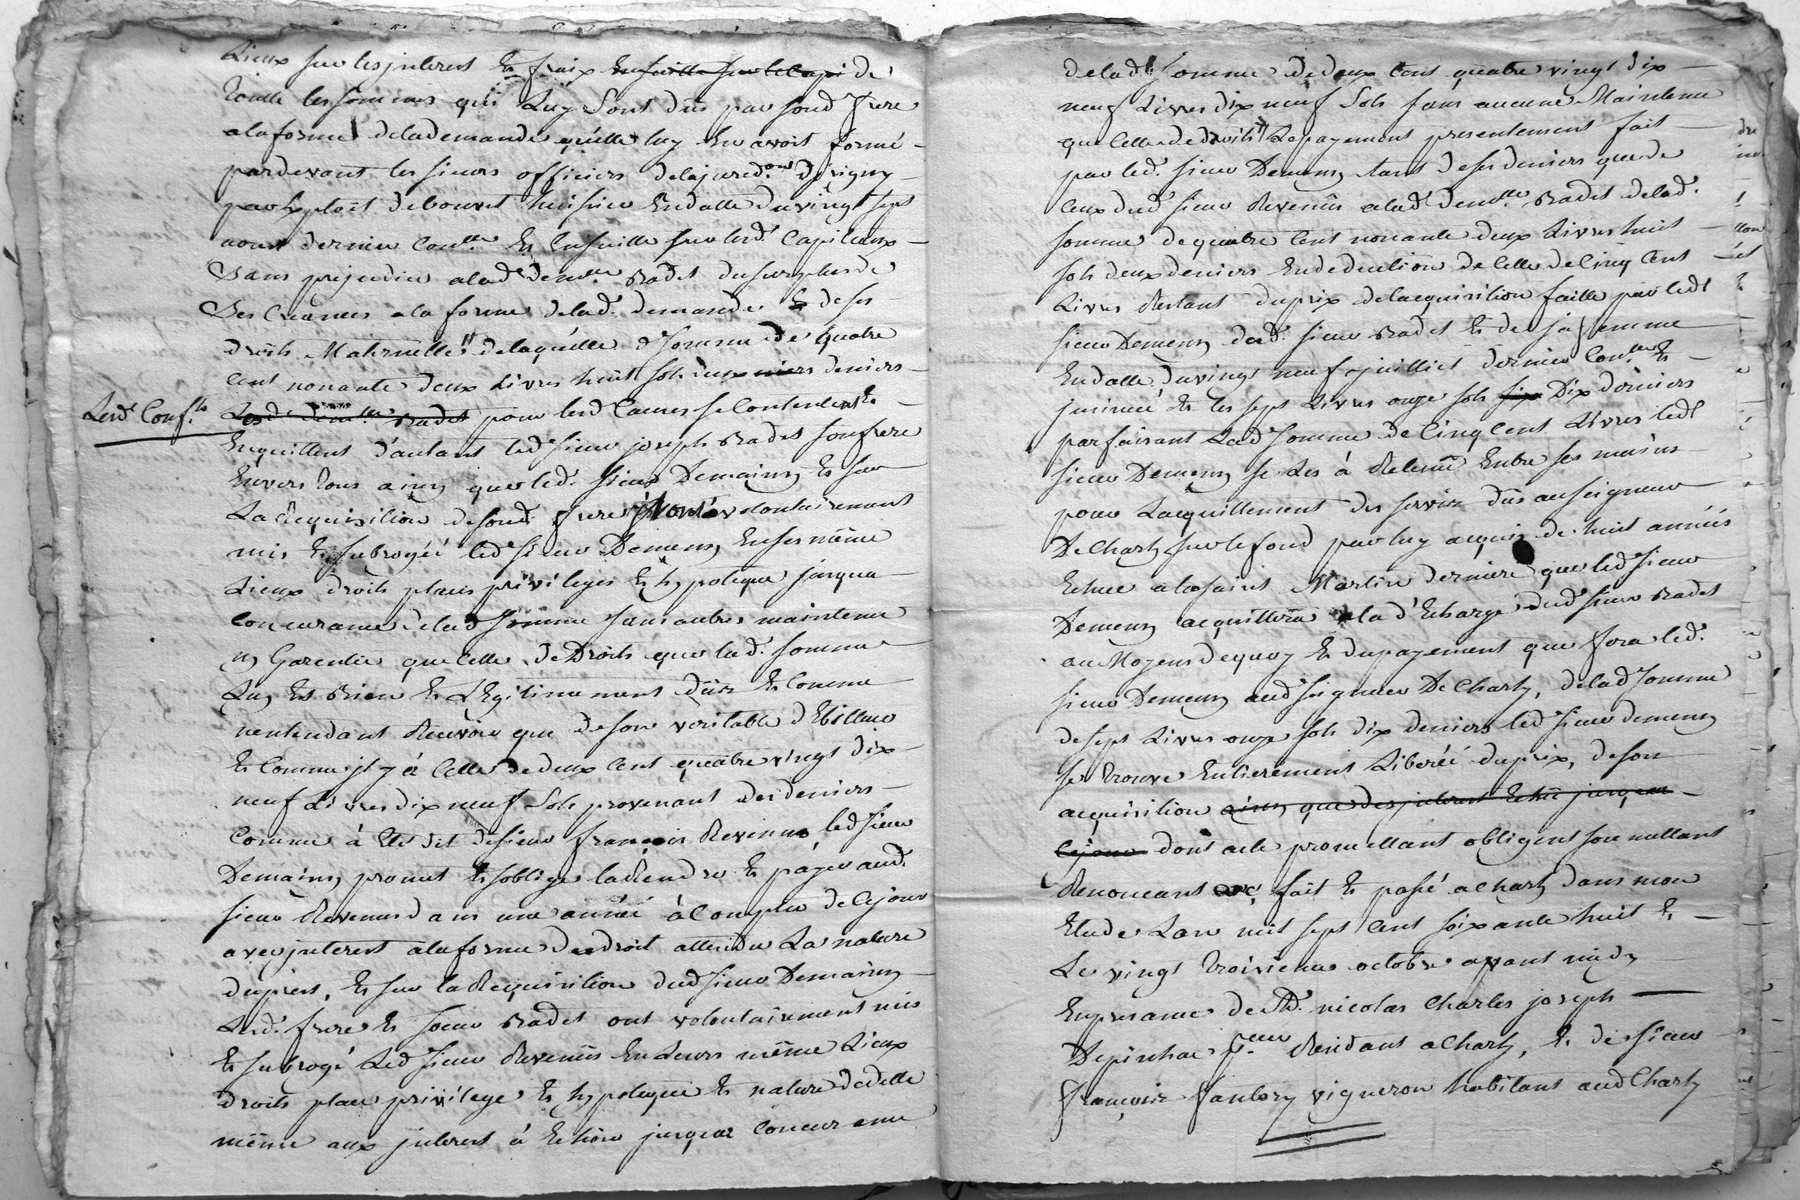 Lieux sur les jnterest Et fraix Ensuitte sur le capi de
toutte les sommes quil Luy Sont dûs par sond. frere
a la forme de la demande quelle luy En avoit formé
pardevant les sieurs officiers de la jured.on d'jrigny
par Exploit de bouvet huissier En datte du vingt sept
aoust dernier Con.lle Et Ensuitte sur lesd. Capitaux
Sans prejudice a lad. dem.lle Badet du surplus de
Ses Créances a la forme de lad. demande Et de ses
droits Maternelle de laquelle Somme de quatre
Cent nonante deux Livres huit sols deux niers deniers
Lesd. Conf.ts
Lesd. dem.lle Badet pour lesd. Causes se Contentent Et
En quittent d'autant led. sieur joseph Badet son frere
Envers tous ainsy que led. sieur Demainy Et sur
La Requisition de sond. frere volontairement
mis Et subrogéé led. sieur Demeny En ses même
Lieux droits places privileges Et hypoteque jusqua
Concurance de lad. Somme sans autres maintenue
ny Garentie que Celle de Droits que lad. somme
Luy Est Bien Et Légitimement dûe Et Comme
nentendant Recevoir que de son veritable débitteur
Et Comme jl y à Celle de deux Cent quatre vingt dix
neuf Livres dix neuf Sols provenant des deniers
Comme à Eté dit de sieur françois Revenus led. sieur
Demainy promet Et soblige la Rendre Et payer aud.
sieur Revenus dans une année à Compter de Ce jour
avec jnterest a la forme de droit attendu La nature
du prest, Et sur la Requisition dud. sieur Demainy
Lesd. frere Et soeur Badet ont volontairement mis
Et subrogé Led. sieur Revenus En Leurs même Lieux
droits place privilege Et hypoteque Et nature de dette
même aux jnterest à Echoir jusqua Concurance
de lad. Somme de deux Cent quatre vingt dix
neuf Livres dix neuf Sols sans aucune Maintenue
que Celle de droits Le payement presentement fait
par led. sieur Demeny tant de ses deniers que de
Ceux dud. sieur Revenus a lad. dem.lle Badet de lad.
somme de quatre Cent nonante deux Livres huit
sols deux deniers En deduction de Celle de Cinq Cent
Livres Restant du prix de lacquisition faitte par led.
sieur Demeny dud. sieur Badet Et de sa femme
En datte du vingt neuf juilliet dernier Con.lle Et
jnsinué Et les sept Livres onze sols six Dix deniers
parfaisant Lad. Somme de Cinq Cent Livres led.
sieur Demeny se Les à Retenu Entre ses mains
pour Lacquittement des servis dûs au seigneur
De Charly sur le fond par luy acquis de huit années
Echue a la saint Martin derniere que led. sieur
Demeny acquittera a la d'Echarge dud. sieur Badet
au Moyens de quoy Et du payement que fera led.
sieur Demeny aud. seigneur De Charly, de lad. Somme
de sept Livres onze sols dix deniers led. sieur demeny
se trouve Entierement Libérée du prix, de son
acquisition ainsy que des jnterest Echû jusqua
Ce jour dont acte promettant obligent soumettant
Renonceant fait Et passé a Charly dans mon
Etude Lan mil sept Cent soixante huit Et
Le vingt troisieme octobre avant midy
En presance de M.d nicolas Charles joseph
Depinhac Residant a Charly, Et de sieur
françois vigneron habitant aud. Charly